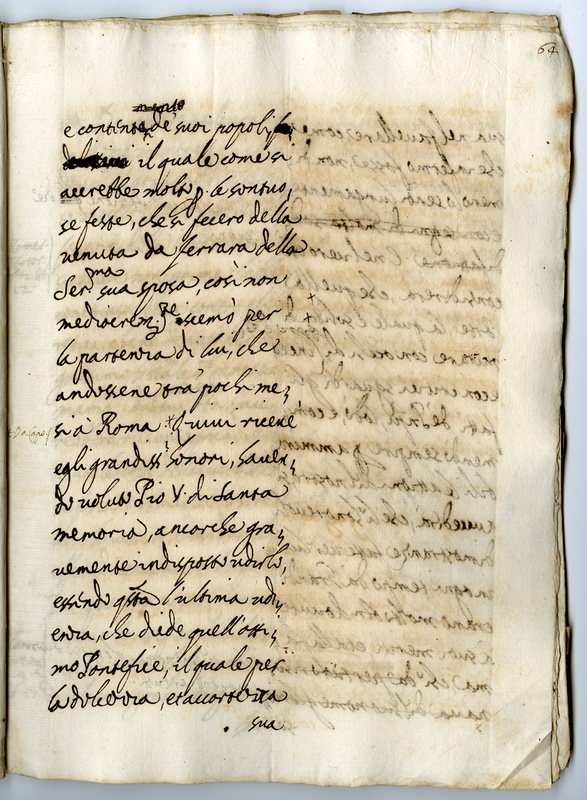 64
e contento de' suoi popoli
il quale come si
accrebbe molto p. le sontuo,
se feste, che si fecero della
venuta da ferrara della
Ser.ma sua sposa, così non
mediocrem.te scemò per
la partenza di lui, che
andossene trà pochi me,
si à Roma + Quiui riceuè
egli grandiss.i honori, hauen,
do voluto Pio V. di Santa
memoria, ancorche gra,
uemente indisposto udirlo,
essendo qsta l'ultima udi,
enza, che diede quell'otti,
mo Pontefice, il quale per
la dolcezza, et accortezza
sua